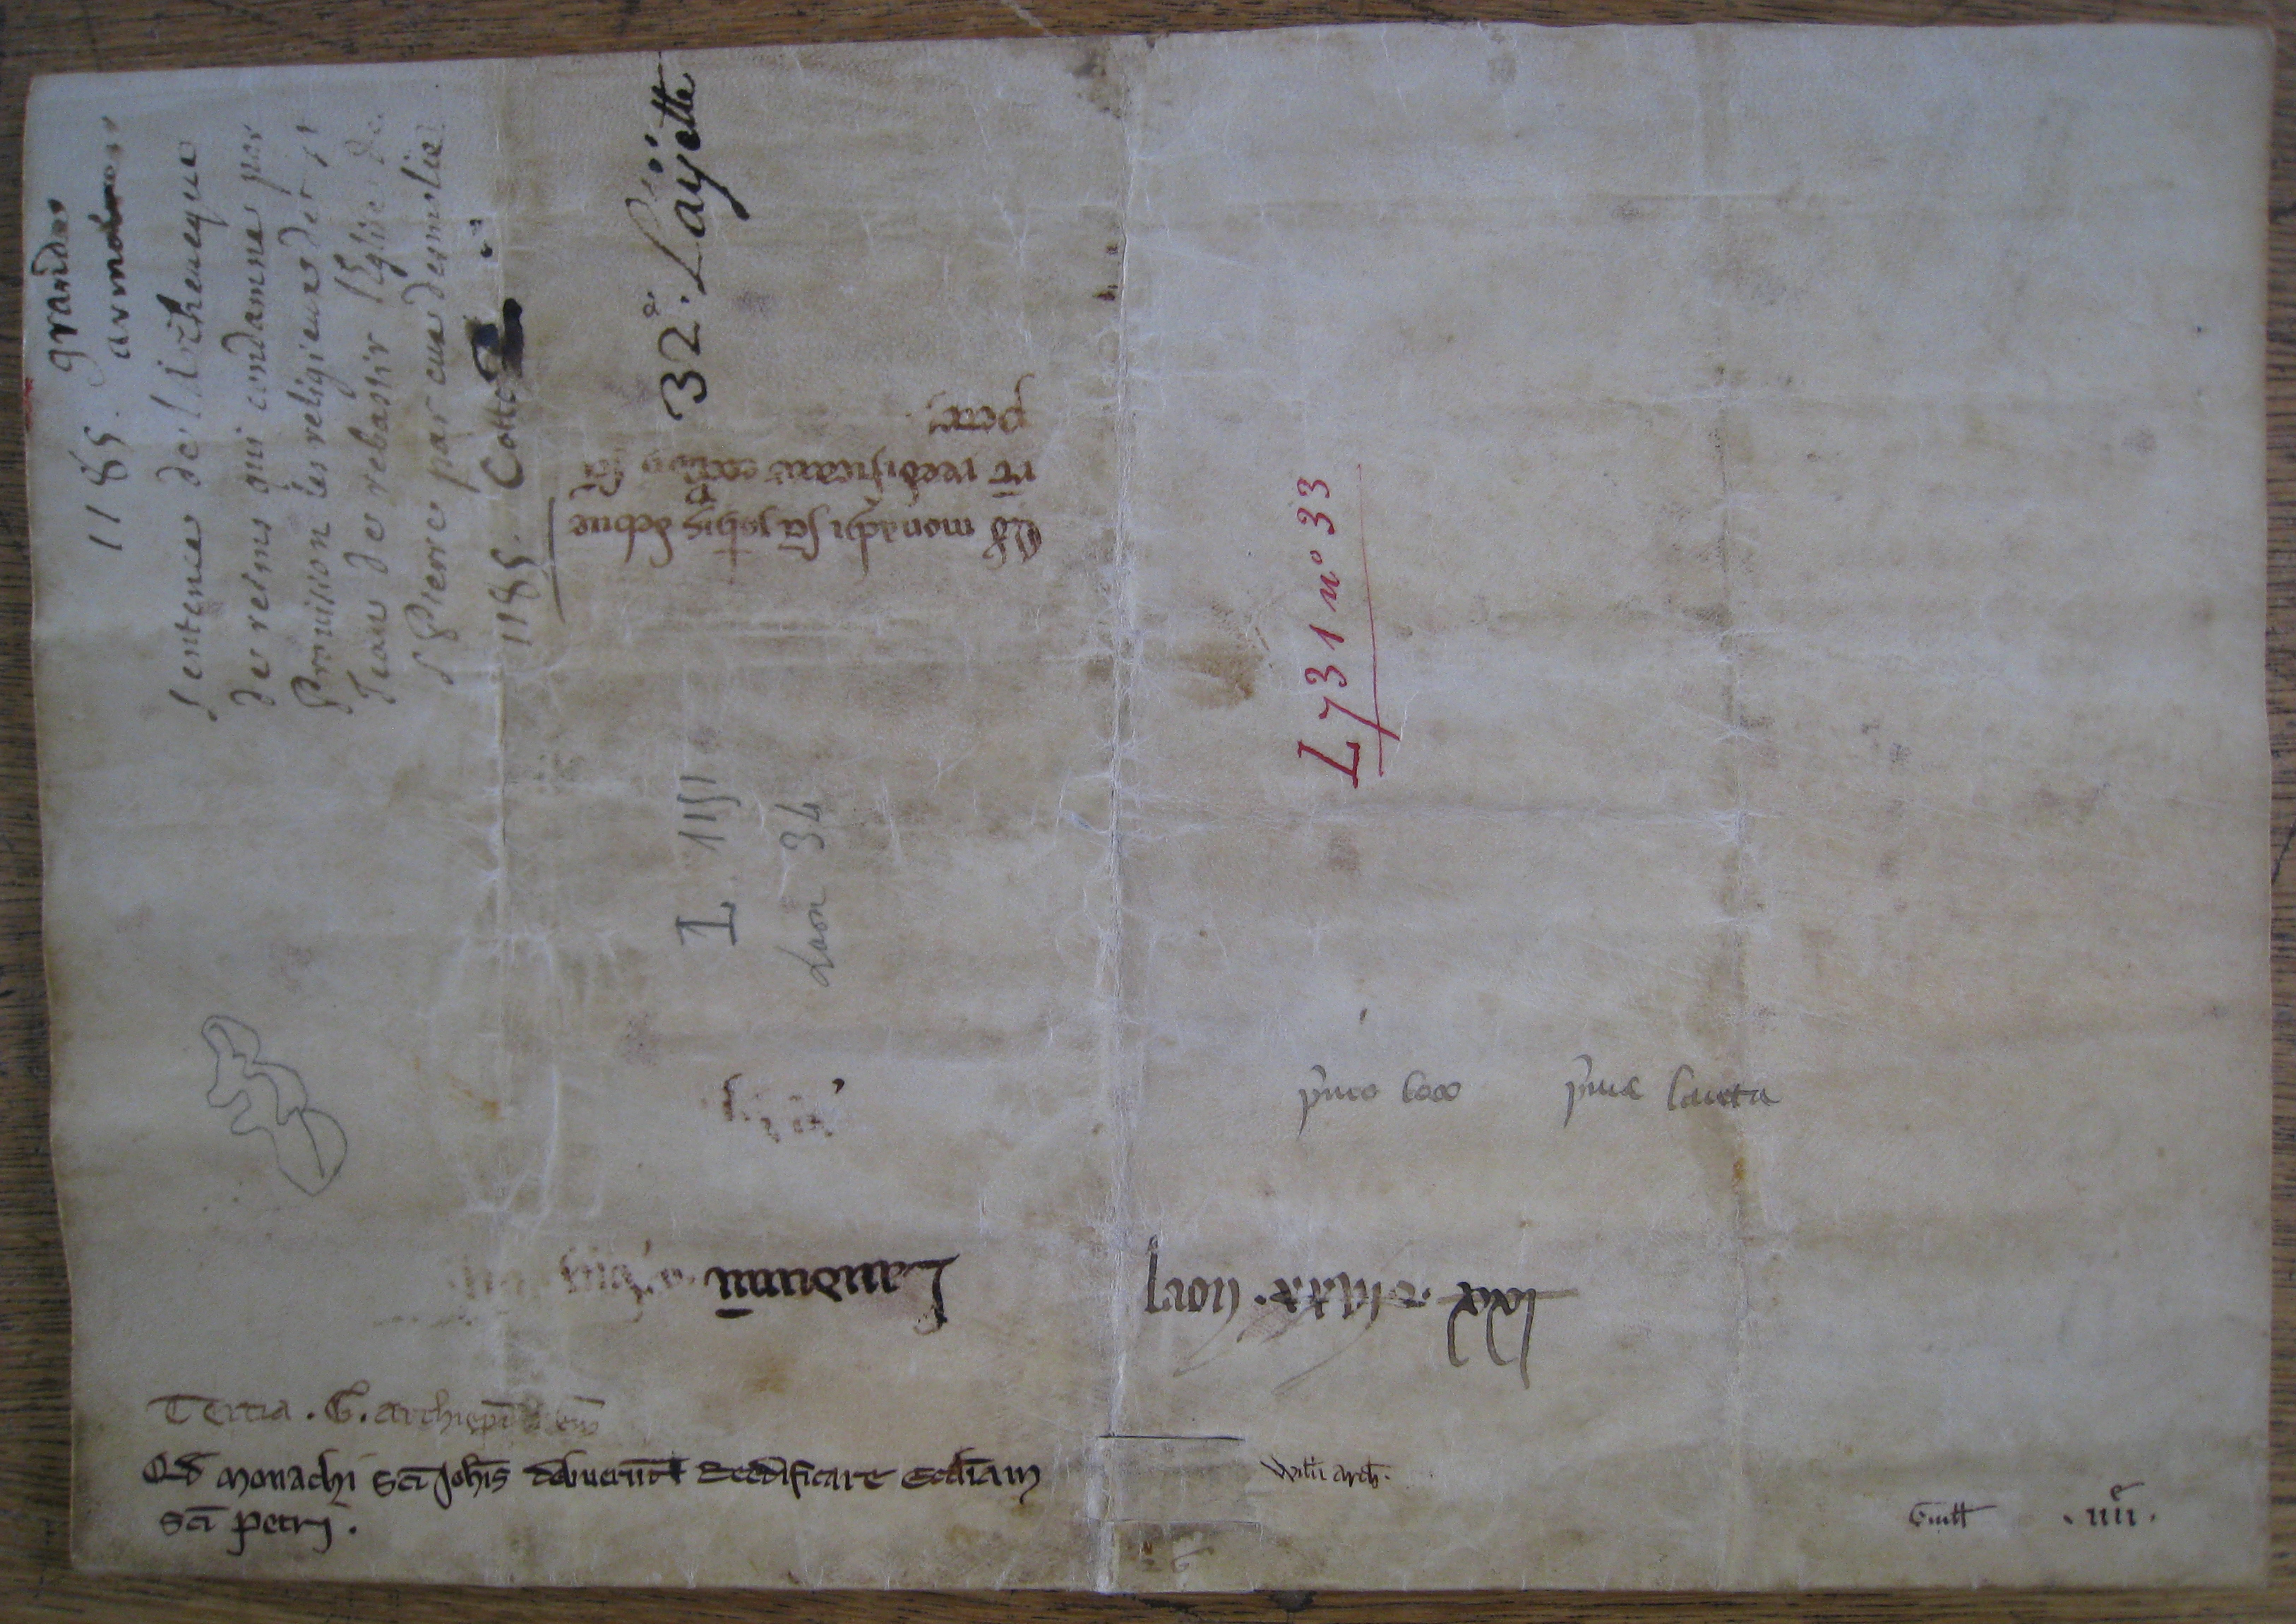 1185. grandes
armoires
Sentence de l'Archeueque
de reims qui condamne par
Prouision les religieux de st
Jean de rebastir l'Eglise de
st Pierre par eux desmolie
1185. Cotte
32e. Layette
Qd monachi sci johis debue
rt reedificare eccliam sci
petri
L 1151
Laon 34
L 731 n° 33
pmo loco pma laieta
Laudunu
laon
Tertia . G. archiepi
Qd monachi sci Johis debuerunt Reedificare eccliam
sci petri .
Willi arch.
Guill . iiii .